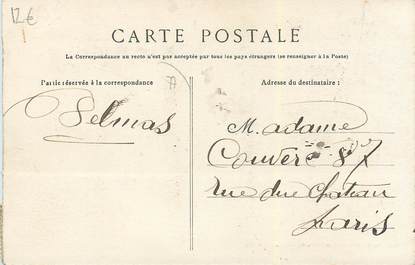 12€
CARTE POSTALE
La Correspondance au recto n'est pas acceptée par tous les pays étrangers (se renseigner à la Poste)
Partie réservée à la correspondance
Adresse du destinataire :
Delmas
Madame
Couderc 87
rue du Chateau
Paris